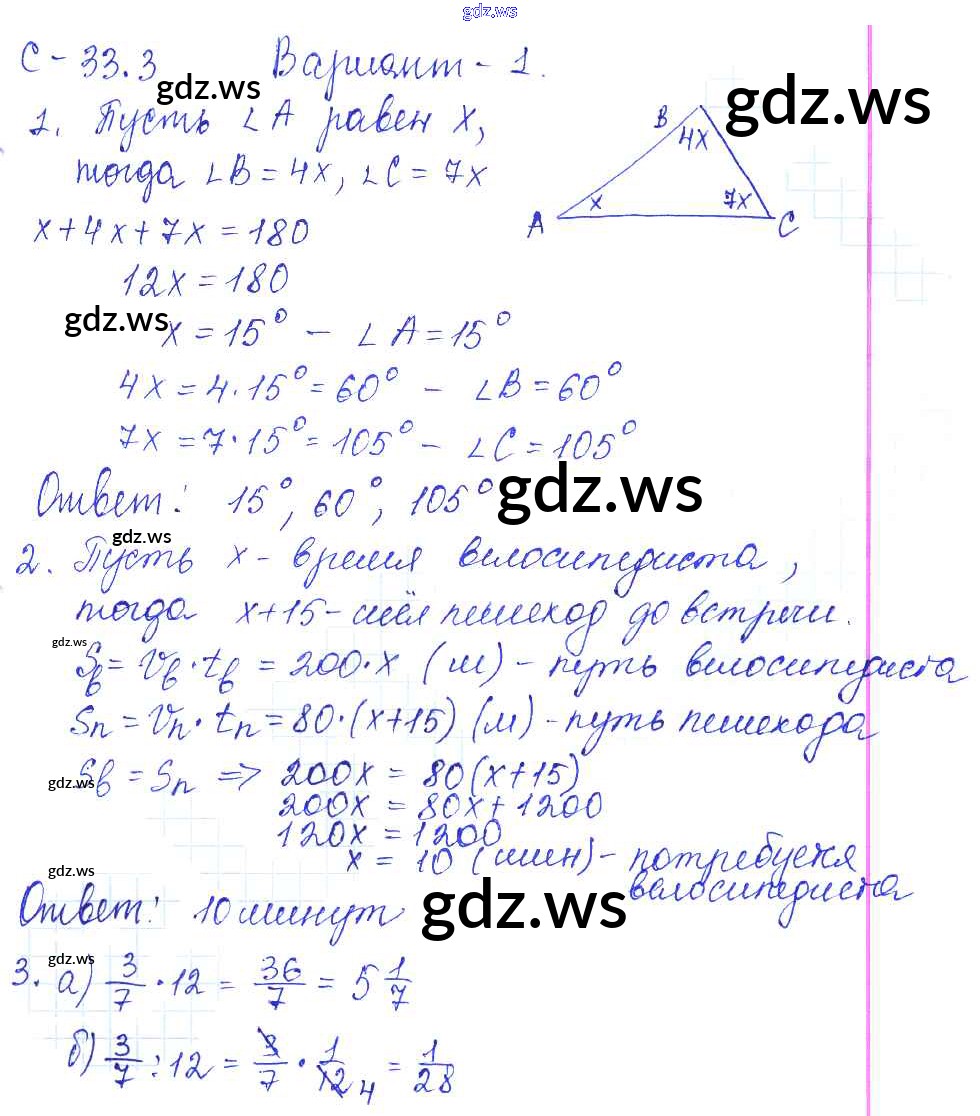 gdz.ws
С-33.3 Вариант-1.
gdz.ws
gdz.ws
1. Пусть ∠A равен x,
тогда ∠B = 4x, ∠C = 7x
B
4x
x
7x
A
C
x+4x+7x = 180
12x = 180
gdz.ws
x = 15° - ∠A = 15°
4x = 4·15° = 60° - ∠B = 60°
7x = 7·15° = 105° - ∠C = 105°
Ответ: 15°, 60°, 105°
gdz.ws
gdz.ws
2. Пусть x - время велосипедиста,
тогда x+15 - шёл пешеход до встречи.
gdz.ws
Sв = Vв·tв = 200·x (м) - путь велосипедиста
Sп = Vп·tп = 80·(x+15) (м) - путь пешехода
gdz.ws
Sв = Sп => 200x = 80(x+15)
200x = 80x + 1200
120x = 1200
x = 10 (мин) - потребуется
велосипедиста
gdz.ws
Ответ: 10 минут
gdz.ws
gdz.ws
3. а) 3/7 · 12 = 36/7 = 5 1/7
б) 3/7 : 12 = 3/7 · 1/12 4 = 1/28